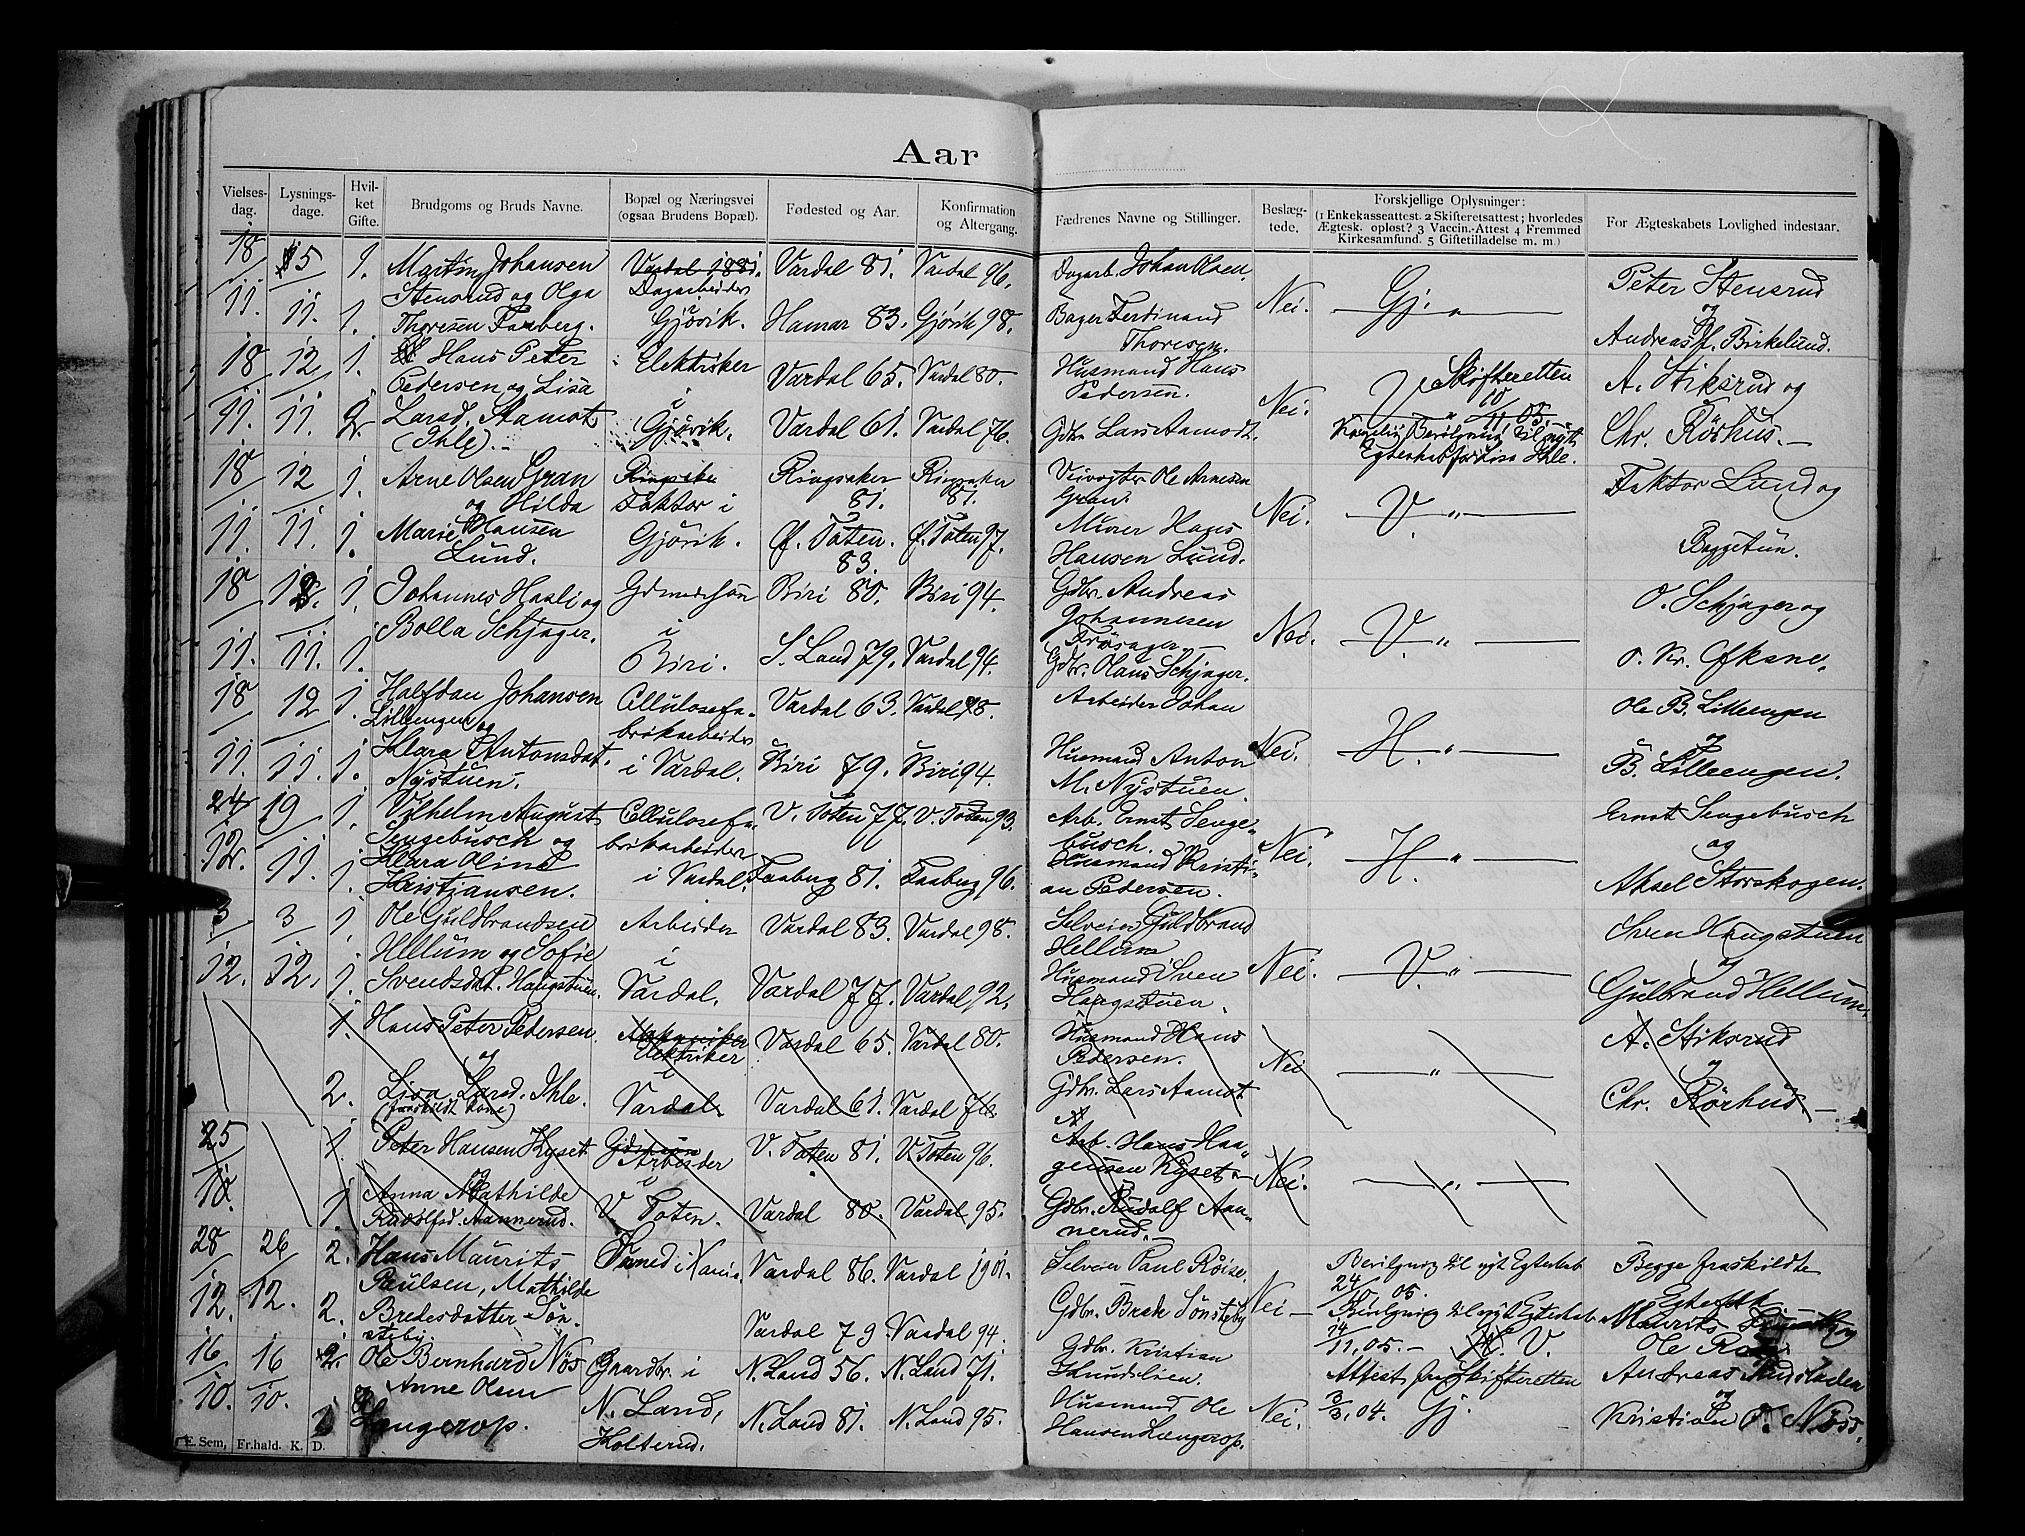 Aar
Vielses-dag. Lysnings-dage. Hvil-ket Gifte. Brudgoms og Bruds Navne. Bopæl og Næringsvei (ogsaa Brudens Bopæl). Fødested og Aar. Konfirmation og Altergang. Fædrenes Navne og Stillinger. Beslæg-tede. Forskjellige Oplysninger: (1 Enkekasseattest. 2 Skifteretsattest; hvorledes Ægtesk. opløst? 3 Vaccin.-Attest 4 Fremmed Kirkesamfund. 5 Giftetilladelse m. m.) For Ægteskabets Lovlighed indestaar.
18 5 1. Martin Johansen Vardal 1881. Vardal 81. Vardal 96. Dagarb. Johan Olsen. Peter Stensrud
Stensrud og Olga Dagarbeider Nei. Gj. " og
11. 11. 1. Thoresen Faaberg. Gjövik. Hamar 83. Gjövik 98. Bager Ferdinand Andreas H. Birkelund.
Thoresen.
18 12 1. Hans Peter Elektriker Vardal 65. Vardal 80. Husmand Hans Skifteretten A. Stiksrud og
Pedersen og Lisa i Pedersen. Nei. V 10/11 05.
11. 11. 2. Larsd. Aamot Gjövik. Vardal 61. Vardal 76. Gdbr. Lars Aamodt. Bevilgning til nyt Chr. Rörhus.
(Ihle). Egteskab for Lisa Ihle.
18 12 1. Arne Olsen Gran Ringsaker Ringsaker Veivogter Ole Arnesen Faktor Lund og
og Hilda Faktor i 81. 81. Gran. Nei. V. "
11. 11. 1. Marie Hansen Gjövik. Ø. Toten. Ø. Toten 97. Murer Hans Baggetun.
Lund. 83. Hansen Lund.
18 12. 1. Johannes Hasli og Gdmandssön Biri 80. Biri 94. Gdbr. Andreas O. Schjager og
Bolla Schjager. i Johannesen Nei. V. "
11. 11. 1. Biri. S. Land 79. Vardal 94. Gdbr. Olaus Schjager. O. Kr.
18 12 1. Halfdan Johansen Cellulosefa- Vardal 63. Vardal 78. Arbeider Johan Ole B. Lilleengen
Lilleengen og brikarbeider Nei. H. " og
11. 11. 1. Klara Antonsdat. i Vardal. Biri 79. Biri 94. Husmand Anton B. Lilleengen.
Nystuen. M. Nystuen.
24 19 1. Vilhelm August Cellulosefa- V. Toten 77. V. Toten 93. Arb. Ernst Senge- Ernst Sengebusch
Sengebusch og brikarbeider busch. Nei. H. " og
12. 11. 1. Klara Oline i Vardal. Faaberg 81. Faaberg 96. Husmand Kristi- Aksel Storskogen.
Kristiansen. an Pedersen.
3 3 1. Ole Guldbrandsen Arbeider Vardal 83. Vardal 98. Selveier Guldbrand Sven Haugstuen
Hellum og Sofie i Hellum Nei. V. " og
12. 12. 1. Svendsdat. Haugstuen. Vardal. Vardal 77. Vardal 92. Husmand Sven Gulbrand Hellum.
Haugstuen.
1. Hans Peter Pedersen. Elektriker Vardal 65. Vardal 80. Husmand Hans A. Stiksrud
og Pedersen. Nei " og
2. Lisa Larsd. Ihle. Vardal. Vardal 61. Vardal 76. Gdbr. Lars Aamot Chr. Rörhus.
(fraskildt Kone)
25 1. Peter Hansen Kyset Arbeider V. Toten 81. V. Toten 96. Arb. Hans Haa-
og i gensen Kyset Nei. "
10. 1. Anna Mathilde V. Toten. Vardal 80. Vardal 95. Gdbr. Rudolf Aan-
Rudolfsd. Aannerud. nerud.
28 26 2. Hans Maurits Smed i Vardal 86. Vardal 1901. Selveier Paul Röise. Bevilgning til nyt Egteskab Begge fraskildte
Paulsen, Mathilde Nei 24/10 05. Egtefolk
12. 12. 2. Bredesdatter Sön- Vardal 79 Vardal 94. Gdbr. Brede Sönsteby Bevilgning til nyt Egteskab Maurits
steby. 14/11, 05. V. Ole
16 16 2. Ole Bernhard Nöss Gaardbr. i N. Land 56. N. Land 71. Gdbr. Kristian Attest fra Skifteretten Andreas
Anne Olsen N. Land, Knudsen. 3/3, 04. Gj. og
10. 10. 1 Længerop. Holterud. N. Land 81. N. Land 95. Husmand Ole Nei. Kristian O. Nöss.
Hansen Længerop.
E. Sem, Fr.hald. K. D.